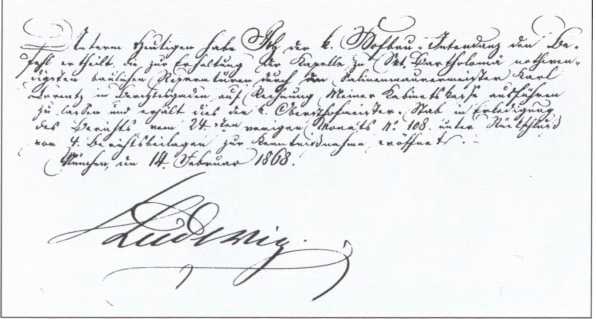 Unterm Heutigen habe Ich der k. Hofbau-Intendanz den Be-
fehl ertheilt, die zur Erhaltung der Kapelle zu St. Bartholomä nothwen-
digsten baulichen Reparaturen durch den Salinenmaurermeister Karl
Lorentz in Berchtesgaden auf Rechnung Meiner Kabinetskasse ausführen
zu lassen und erhält dies der k. Obersthofmeister-Stab in Erledigung
des Berichts vom 24ten vorigen Monats N. 108. unter Rückschluß
von 4. Berichtsbeilagen zur Kenntnißnahme eröffnet.
München, den 14. Februar 1868.
Ludwig.